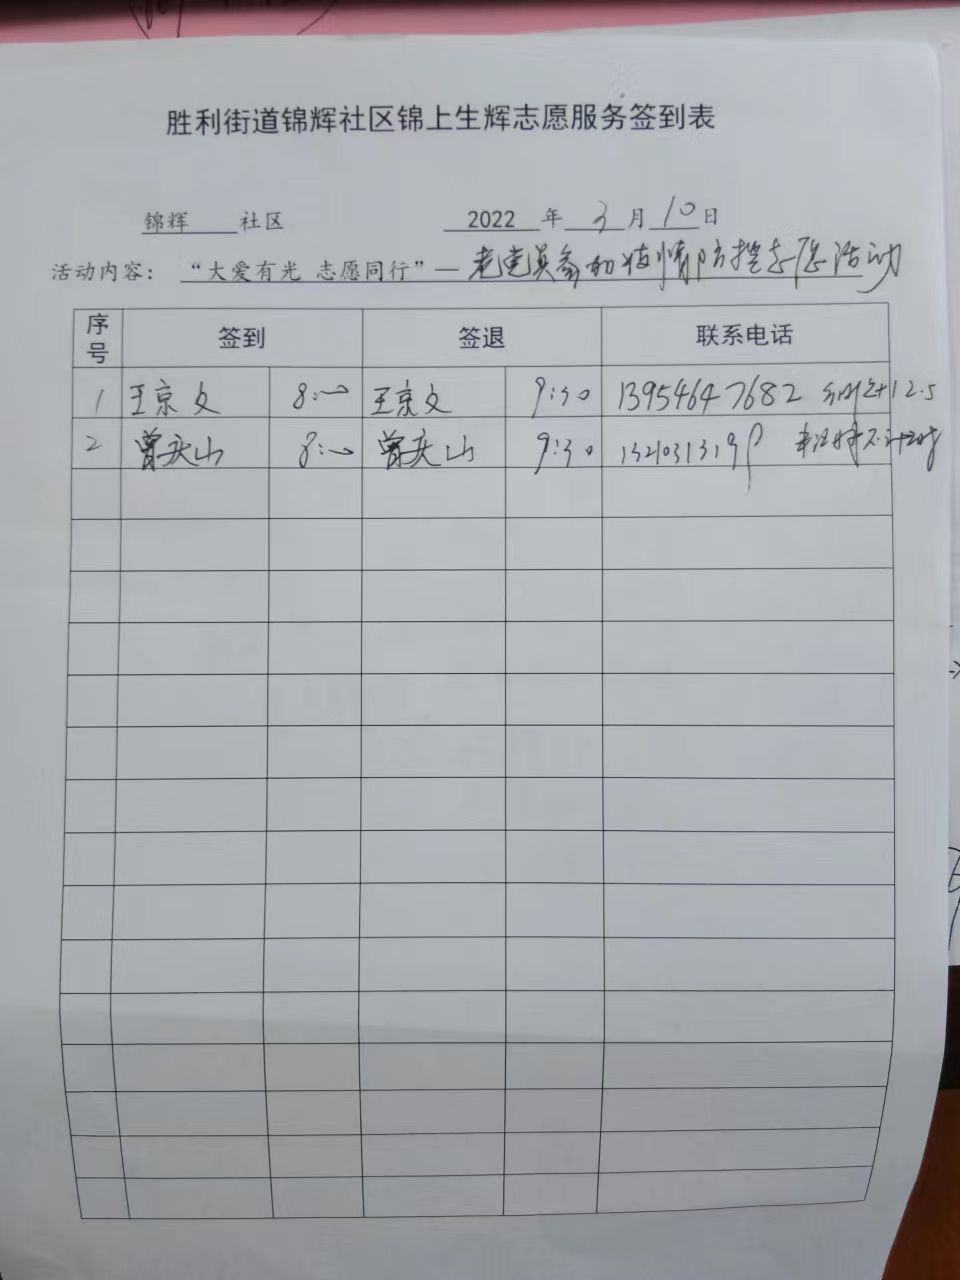 胜利街道锦辉社区锦上生辉志愿服务签到表
锦辉 社区 2022 年 3 月 10 日
活动内容： “大爱有光 志愿同行”— 老党员参加疫情防控志愿活动
序号 签到 签退 联系电话
1 王京文 8:00 王京文 9:30 13954647682 2.5
2 曾庆山 8:00 曾庆山 9:30